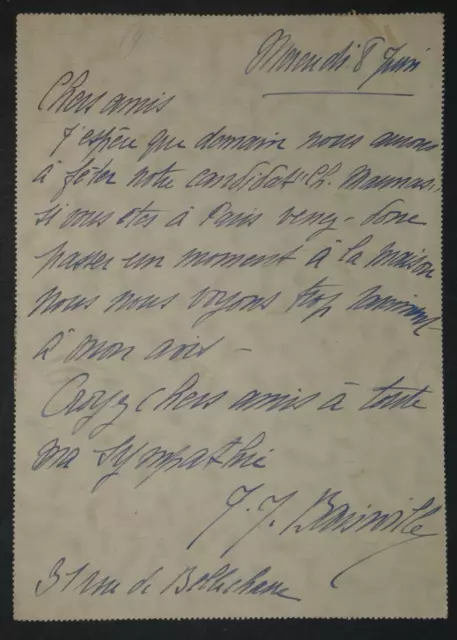 Mercredi 8 Juin
Chers amis
J'espère que demain nous aurons
à fêter notre candidat "Ch. Maurras",
si vous êtes à Paris venez donc
passer un moment à la maison
nous nous voyons trop rarement
à mon avis –
Croyez chers amis à toute
ma sympathie
J. J. Bainville
31 rue de Bellechasse